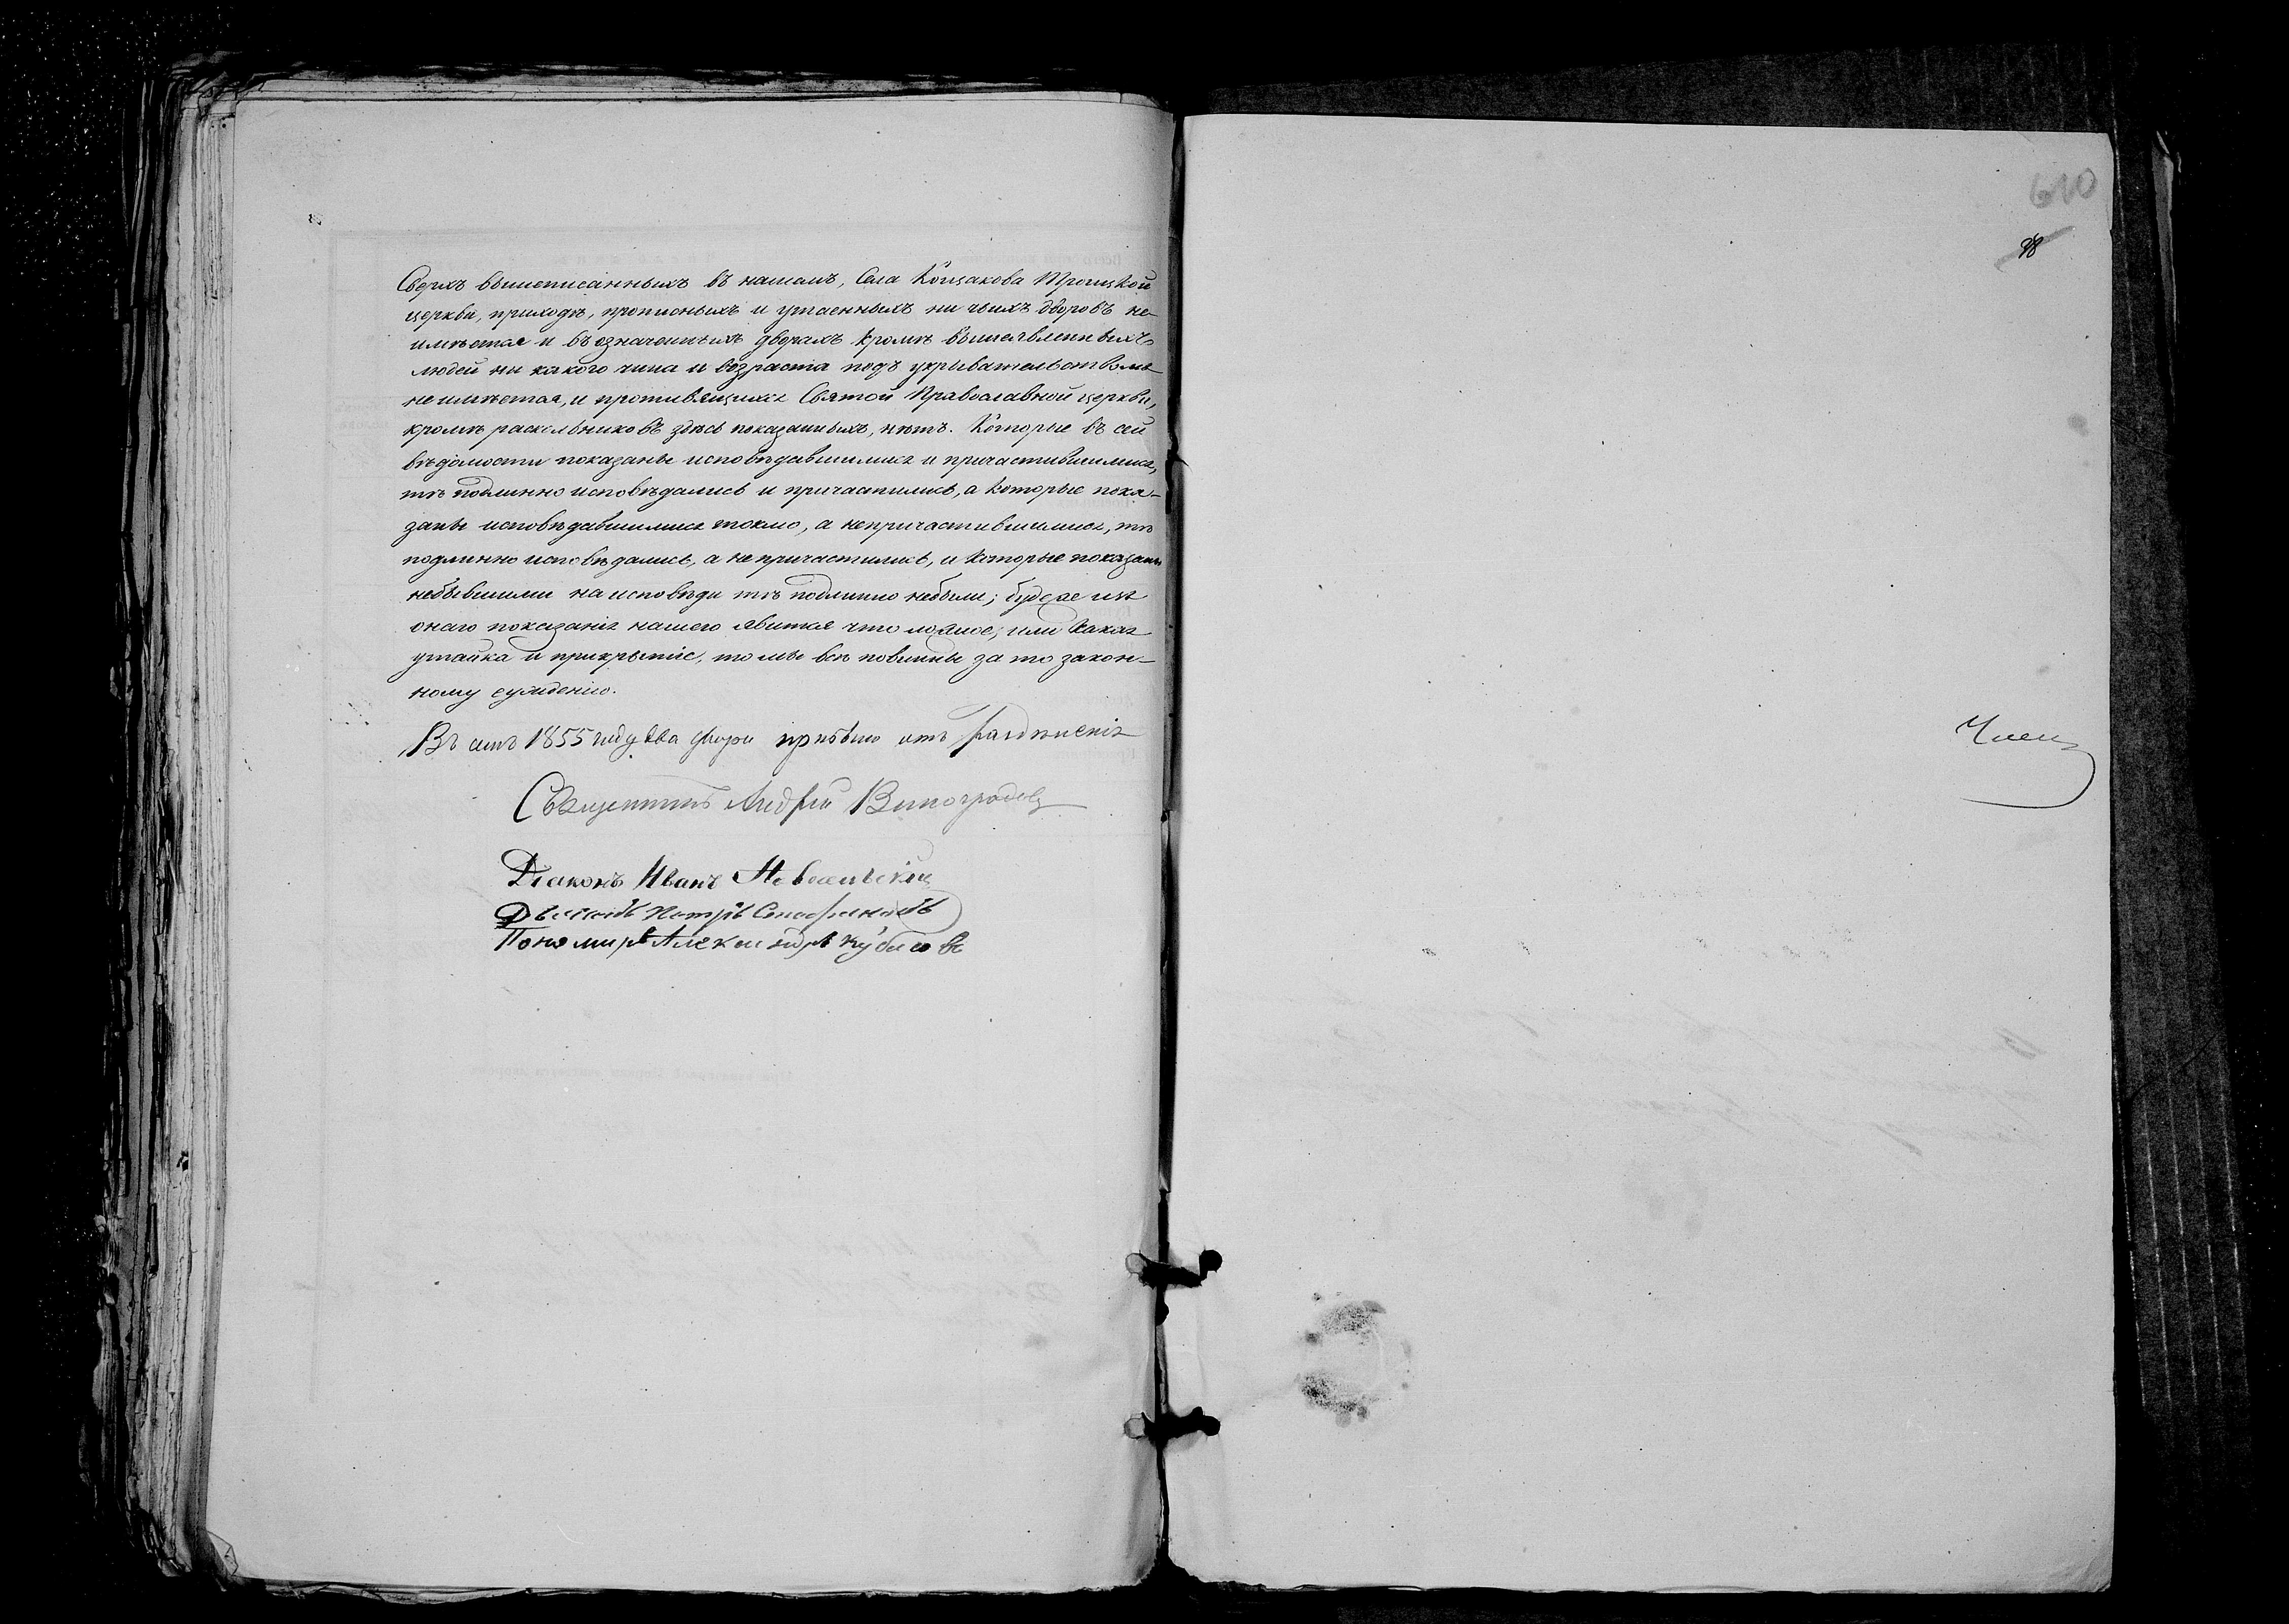 Сверхъ вышеписанныхъ въ нашемъ, Села Кощакова Троицкой
церкви, приходѣ, прописныхъ и утаенныхъ ни чьихъ дворовъ не-
имѣется и въ означенныхъ дворахъ кромѣ вышеявленныхъ
людей ни какого чина и возраста подъ укрывательствомъ
не имѣется, и противящихся Святой Православной церкви,
кромѣ раскольниковъ здѣсь показанныхъ, нѣтъ. Которые въ сей
вѣдомости показаны исповѣдавшимися и причастившимися,
тѣ подлинно исповѣдались и причастились, а которые пока-
заны исповѣдавшимися токмо, а непричастившимися, тѣ
подлинно исповѣдались, а не причастились, и которые показаны
небывшими на исповѣди тѣ подлинно небыли; будеже изъ
онаго показанія нашего явится что ложное, или какая
утайка и прикрытіе, то мы всѣ повинны за то закон-
ному сужденію.
Въ семъ 1855 году два двора прибыло отъ
Священникъ Андрей Виноградовъ
Діаконъ Иванъ
Дьячокъ Петръ
Пономарь Александръ
610
98